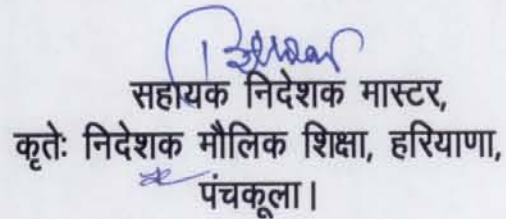 सहायक निदेशक मास्टर,
कृतेः निदेशक मौलिक शिक्षा, हरियाणा,
पंचकूला।